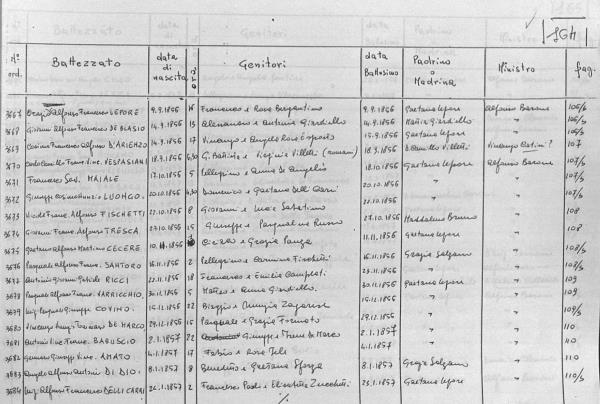 164
N° ord. Battezzato data di nascita ora Genitori data Battesimo Padrino o Madrina Ministro pag.
3667 Alfonso Francesco LEPORE 9.9.1856 16 Francesco e Rosa Bergantino 9.9.1856 Gaetana Lepore Alfonso Barone 106/b
3668 Giovanni Alfonso Francesco DE BLASIO 14.9.1856 13 Alessandro e Antonia Giardiello 14.9.1856 Maria Giardiello " 106/b
3669 Carmina Francesca Alfonso D'ARIENZO 14.9.1856 17 Vincenzo e Angela Rosa Esposto 15.9.1856 Gaetana Lepore " 106/b
3670 Vinc. VESPASIANI 18.9.1856 G. Battista e Virginia Villetti (romani) 18.9.1856 D. Camillo Villetti Vincenzo 107
3671 Francesco Sav. MAIALE 17.10.1856 5 Pellegrino e Anna D'Angelis 18.10.1856 Gaetana Lepore Alfonso Barone 107/b
3672 Giuseppe Cosimo Nunzio LUONGO. 20.10.1856 Domenico e Gaetana 20.10.1856 " " 107/b
3673 Nicola Franc. Alfonso FISCHETTI 22.10.1856 8 Giovanni e Lucia Sabatino 22.10.1856 " " 107/b
3674 Giovanni Franc. Alfonso TRESCA 27.10.1856 15 Giuseppe e Pasqualina Russo 27.10.1856 Maddalena Bruno " 108
3675 Gaetano Alfonso Martino CECERE 10.11.1856 Ciro e Grazia Panza 11.11.1856 Gaetana Lepore " 108
3676 Pasquale Alfonso Franc. SANTORO 16.11.1856 2 Pellegrino e Carmina Fischetti 16.11.1856 Grazia Salzano " 108/b
3677 Antonio Giovanni RICCI 22.11.1856 18 Francesco e Emilia 23.11.1856 " " 108/b
3678 Pasquale Alfonso Franc. VARRICCHIO. 30.11.1856 5 Matteo e Anna Giardiello. 30.11.1856 Gaetana Lepore " 109
3679 Luigi Giuseppe COVINO. 15.12.1856 12 Biagio e Orungia Zagarese 15.12.1856 " " 109
3680 Vincenzo Luigi Tommaso DE MARCO 29.12.1856 15 Pasquale e Grazia Formato 29.12.1856 " " 109/b
3681 Antonio Vinc. Franc. BABUSCIO 2.1.1857 22 Giuseppe e Irene De Marco 2.1.1857 " " 110
3682 Gennaro Giuseppe Vinc. AMATO 4.1.1857 17 Fabio e Rosa 4.1.1857 " " 110
3683 Angelo Alfonso Antonio DI DIO. 8.1.1857 8 Benedetto e Gaetana Sforza 8.1.1857 Grazia Salzano " 110
3684 Luigi Alfonso Francesco DELLI CARRI 22.1.1857 2 Francesco Paolo e Elisabetta Zucchetti 23.1.1857 Gaetana Lepore " 110/b